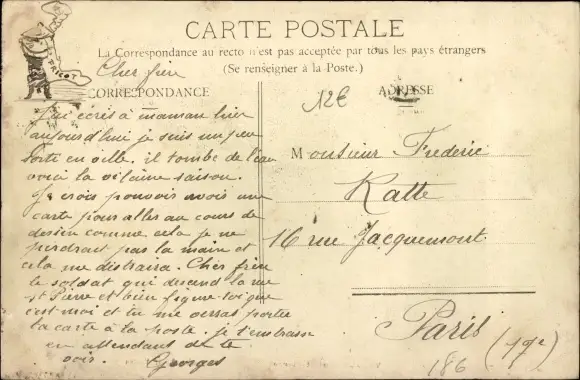 CARTE POSTALE
La Correspondance au recto n'est pas acceptée par tous les pays étrangers
(Se renseigner à la Poste.)
FRICOT
CORRESPONDANCE
ADRESSE
12€
Cher frère
J'ai écris à maman hier
aujourd'hui je suis un peu
sorti en ville. il tombe de l'eau
voici la vilaine saison.
Je crois pouvoir avoir une
carte pour aller au cours de
dessin comme cela je ne
perdrait pas la main et
cela me distraira. Cher frère
le soldat qui descend la rue
St Pierre et bien figure-toi que
c'est moi et tu me verras porter
la carte à la poste. je t'embrasse
en attendant de te
voir. Georges
Monsieur Frederic
Katte
16 rue Jacquemont.
Paris (17e)
186